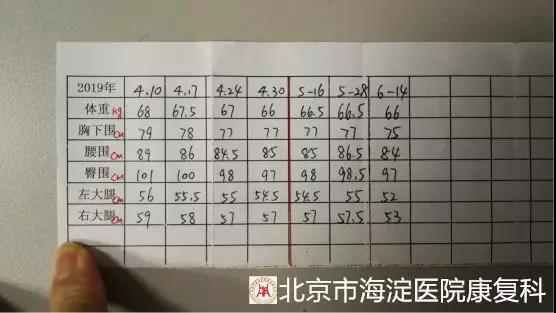 2019年 4.10 4.17 4.24 4.30 5-16 5-28 6-14
体重kg 68 67.5 67 66 66.5 66.5 66
胸下围cm 79 78 77 77 77 77 75
腰围cm 89 86 84.5 85 85 86.5 84
臀围cm 101 100 98 97 98 98.5 97
左大腿cm 56 55.5 55 54.5 54.5 55 52
右大腿cm 59 58 57 57 57 57.5 53
北京市海淀医院康复科